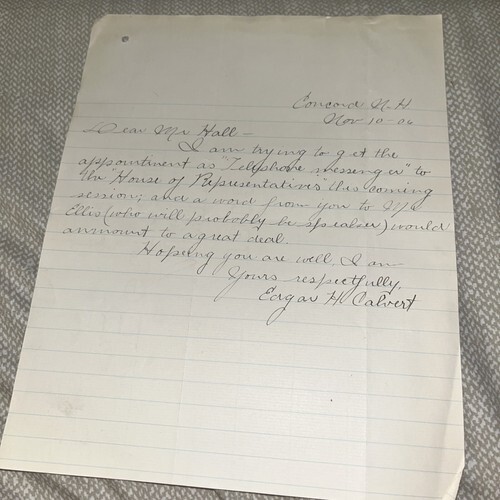 Concord N.H.
Nov 10-06
Dear Mr Hall-
I am trying to get the
appointment as "Telephone messenger" to
the "House of Representatives" this coming
session, and a word from you to Mr
Ellis (who will probably be speaker) would
ammount to a great deal.
Hopeing you are well, I am
Yours respectfully,
Edgar H. Calvert